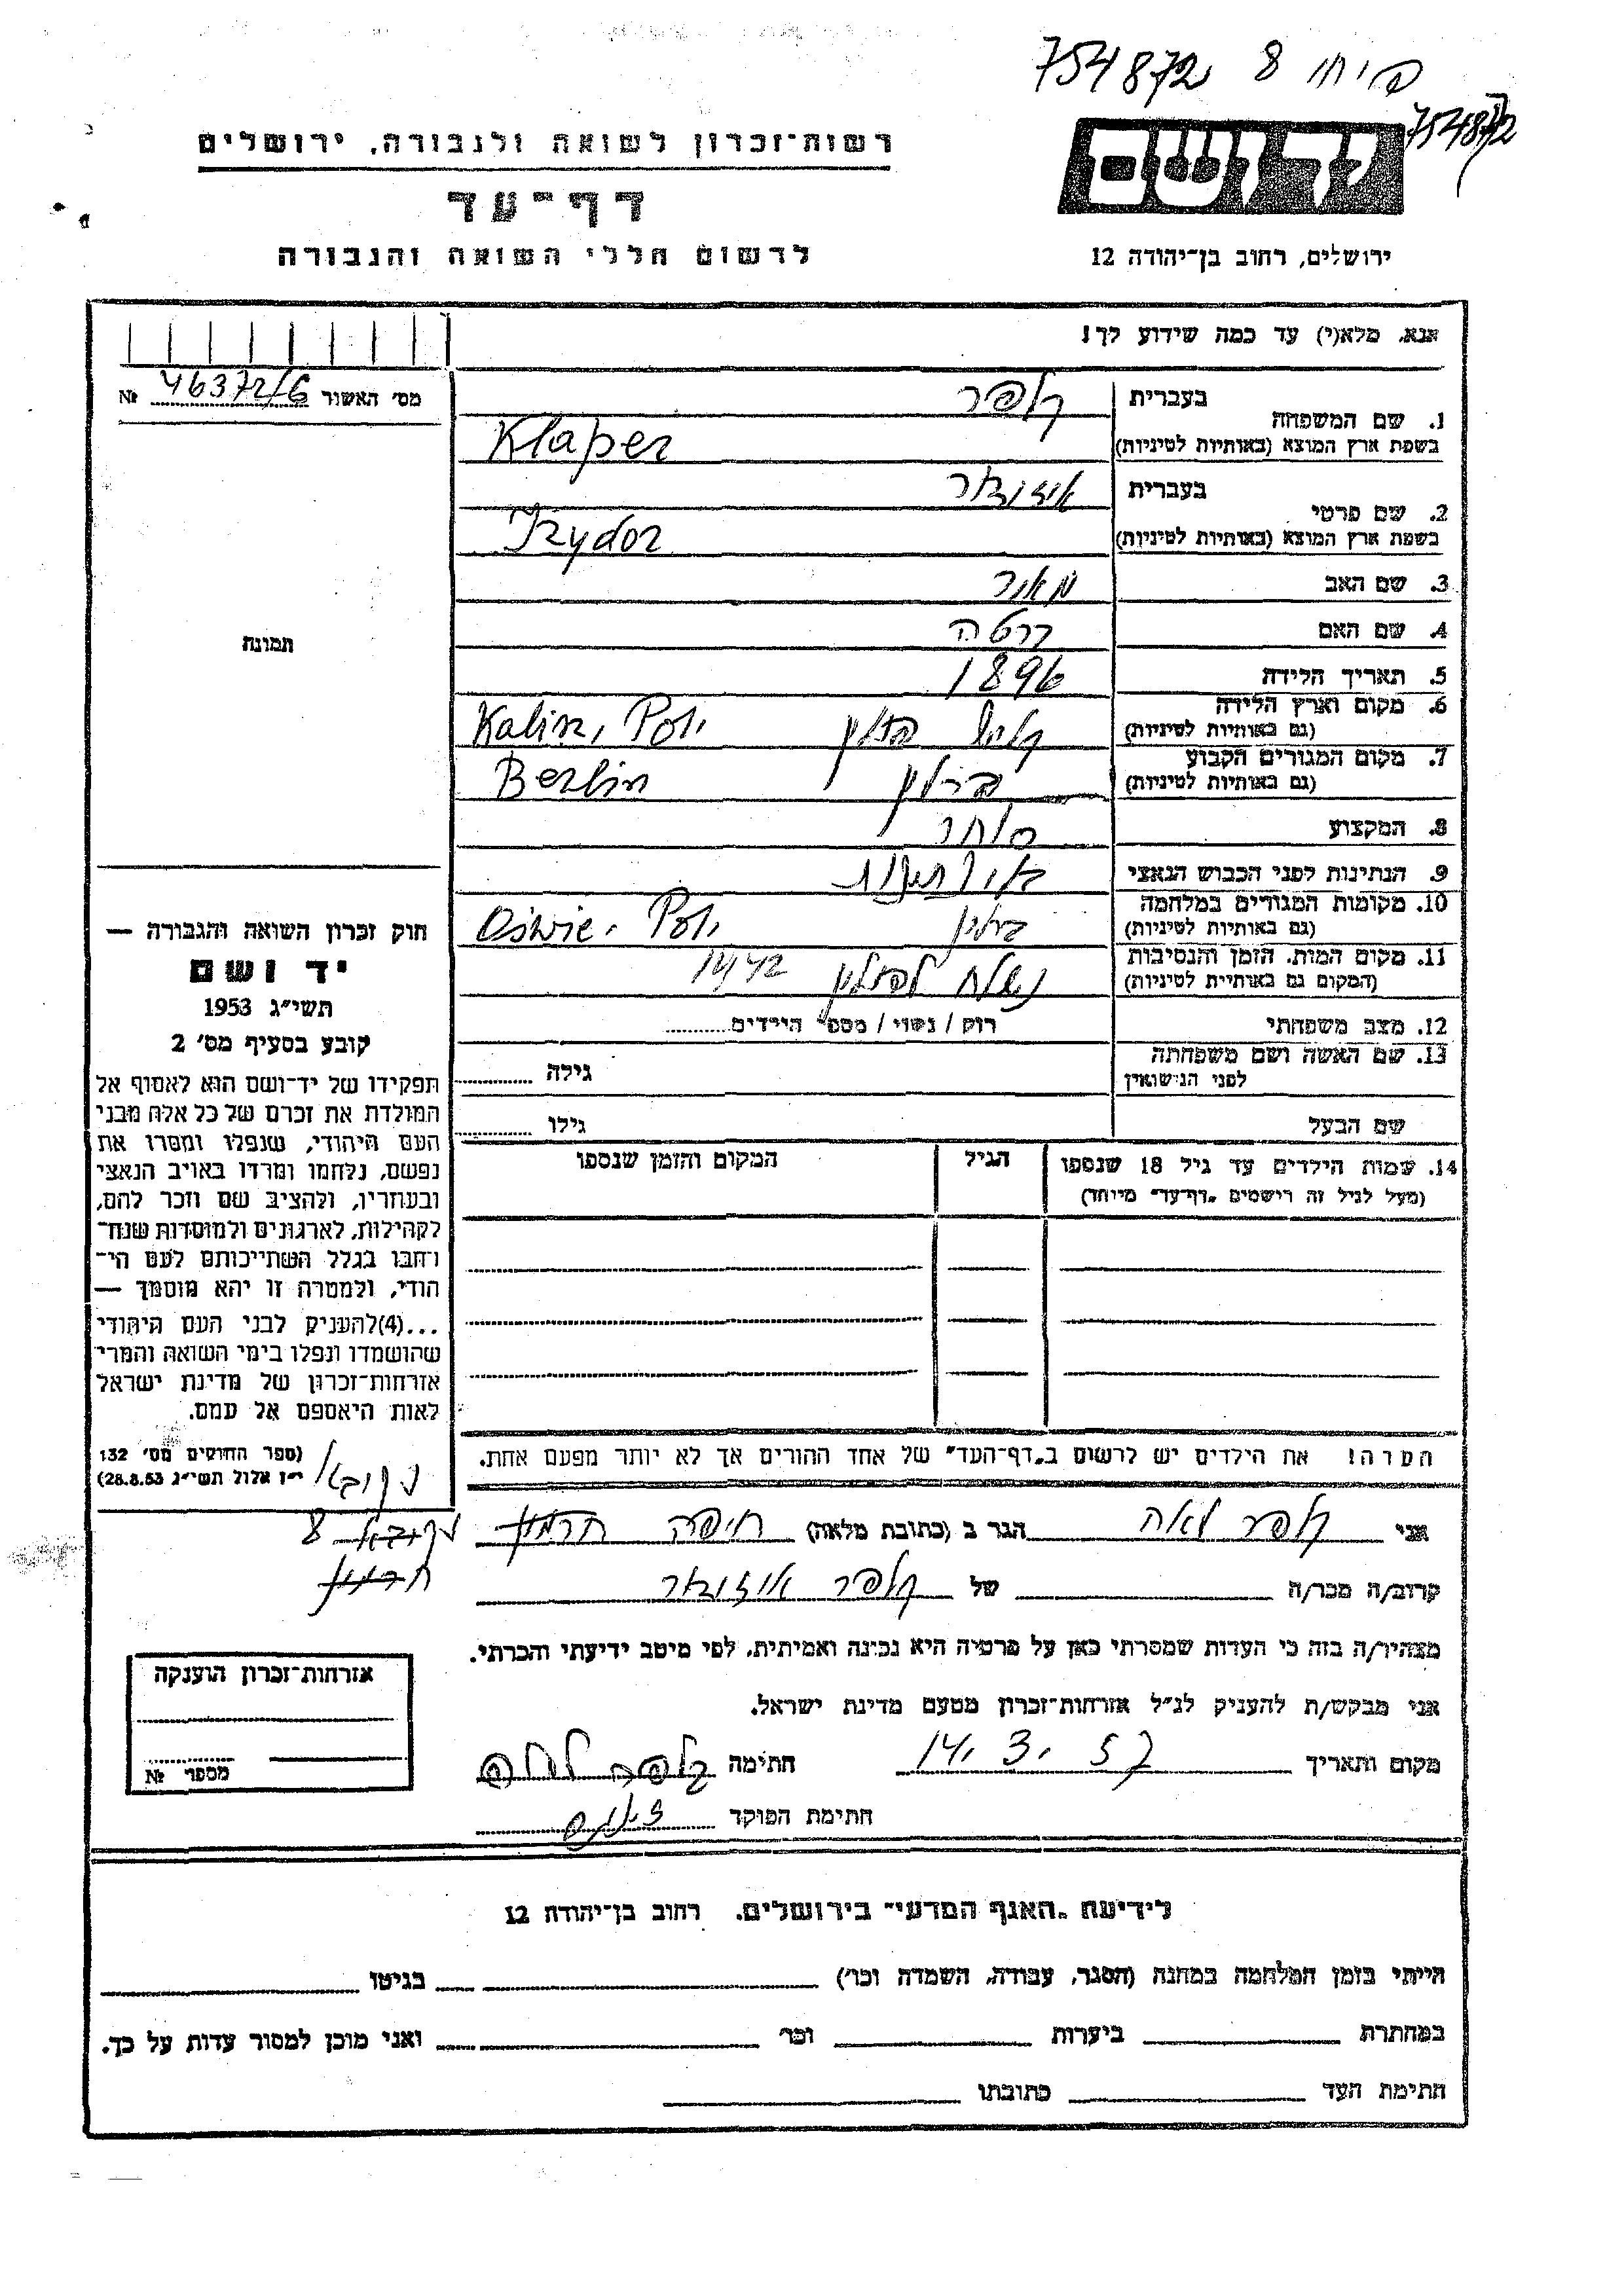 754872
754872
יד ושם
רשות-זכרון לשואה ולגבורה, ירושלים
דף-עד
לרשום חללי השואה והגבורה
ירושלים, רחוב בן-יהודה 12
אנא, מלא(י) עד כמה שידוע לך!
מס' האשור 46372/6 №
1. שם המשפחה
בעברית קלפר
בשפת ארץ המוצא (באותיות לטיניות) Klaper
2. שם פרטי
בעברית איזידור
בשפת ארץ המוצא (באותיות לטיניות) Izydor
3. שם האב מאיר
4. שם האם ברטה
5. תאריך הלידה 1896
6. מקום וארץ הלידה
(גם באותיות לטיניות) פולין Kalisz, Pol.
7. מקום המגורים הקבוע
(גם באותיות לטיניות) ברלין Berlin
8. המקצוע סוחר
9. הנתינות לפני הכבוש הנאצי
10. מקומות המגורים במלחמה
(גם באותיות לטיניות) ברלין Pol.
11. מקום המות, הזמן והנסיבות
(המקום גם באותיות לטיניות) נשלח לפולין
12. מצב משפחתי רוק / נשוי / מספר הילדים
13. שם האשה ושם משפחתה
לפני הנישואין גילה
שם הבעל גילו
14. שמות הילדים עד גיל 18 שנספו הגיל המקום והזמן שנספו
(מעל לגיל זה רישמים "דף-עד" מייוחד)
הערה! את הילדים יש לרשום ב"דף-העד" של אחד ההורים אך לא יותר מפעם אחת.
תמונה
חוק זכרון השואה והגבורה —
יד ושם
תשי"ג 1953
קובע בסעיף מס' 2
תפקידו של יד-ושם הוא לאסוף אל
המולדת את זכרם של כל אלה מבני
העם היהודי, שנפלו ומסרו את
נפשם, נלחמו ומרדו באויב הנאצי
ובעוזריו, ולהציב שם וזכר להם,
לקהילות, לארגונים ולמוסדות שנח-
רבו בגלל השתייכותם לעם הי-
הודי, ולמטרה זו יהא מוסמך —
...(4)להעניק לבני העם היהודי
שהושמדו ונפלו בימי השואה והמרי
אזרחות-זכרון של מדינת ישראל
לאות היאספם אל עמם.
(ספר החוקים מס' 132
י"ז אלול תשי"ג 28.8.53)
אני קלפר לאה הגר ב (כתובת מלאה) חיפה
קרוב/ה מכר/ה של קלפר איזידור
מצהיר/ה בזה כי העדות שמסרתי כאן על פרטיה היא נכונה ואמיתית, לפי מיטב ידיעתי והכרתי.
אני מבקש/ת להעניק לנ"ל אזרחות-זכרון מטעם מדינת ישראל.
מקום ותאריך 14. 3. 57 חתימה קלפר לאה
חתימת הפוקד
אזרחות-זכרון הוענקה
מספר №
לידיעת "האגף המדעי" בירושלים, רחוב בן-יהודה 12
הייתי בזמן המלחמה במחנה (הסגר, עבודה, השמדה וכו') בגיטו
במחתרת ביערות וכו' ואני מוכן למסור עדות על כך.
חתימת העד כתובתו